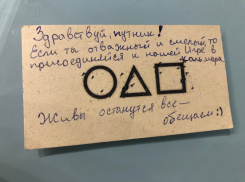 Здравствуй, путник!
Если та отважный и смелый, то
присоединяйся к нашей Игре в
кальмара
Живы останутся все -
обещаем:)